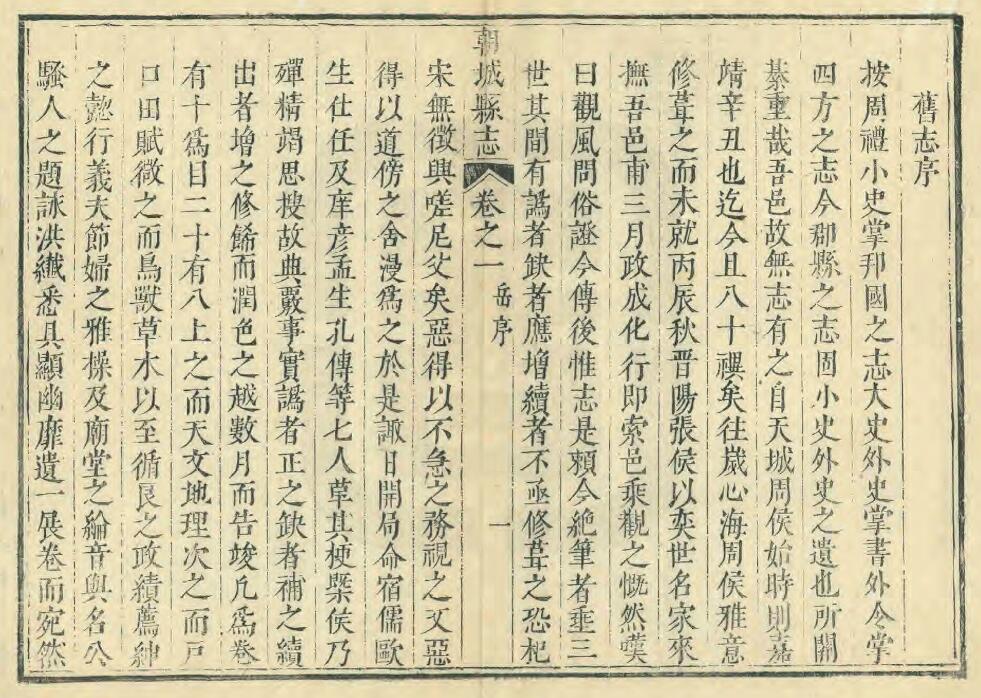 舊志序
按周禮小史掌邦國之志大史外史掌書外令掌
四方之志今郡縣之志固小史外史之遺也所關
綦重哉吾邑故無志有之自天城周侯始時則嘉
靖辛丑也迄今且八十禩矣往嵗心海周侯雅意
修葺之而未就丙辰秋晋陽張侯以奕世名家來
撫吾邑甫三月政成化行即索邑乘觀之慨然嘆
曰觀風問俗證今傳後惟志是賴今絶筆者埀三
世其間有譌者缺者應增續者不亟修葺之恐杞
朝城縣志 卷之一 岳序 一
宋無徴興嗟尼父矣惡得以不急之務視之又惡
得以道傍之舍漫爲之於是諏日開局命宿儒歐
生仕任及庠彦孟生孔傳等七人草其梗槩侯乃
殫精竭思搜故典覈事實譌者正之缺者補之續
出者增之修餙而潤色之越數月而告竣凢爲卷
有十爲目二十有八上之而天文地理次之而戸
口田賦微之而鳥獸草木以至循良之政績薦紳
之懿行義夫節婦之雅操及廟堂之綸音與名公
騷人之題詠洪纎悉具顯幽靡遺一展卷而宛然